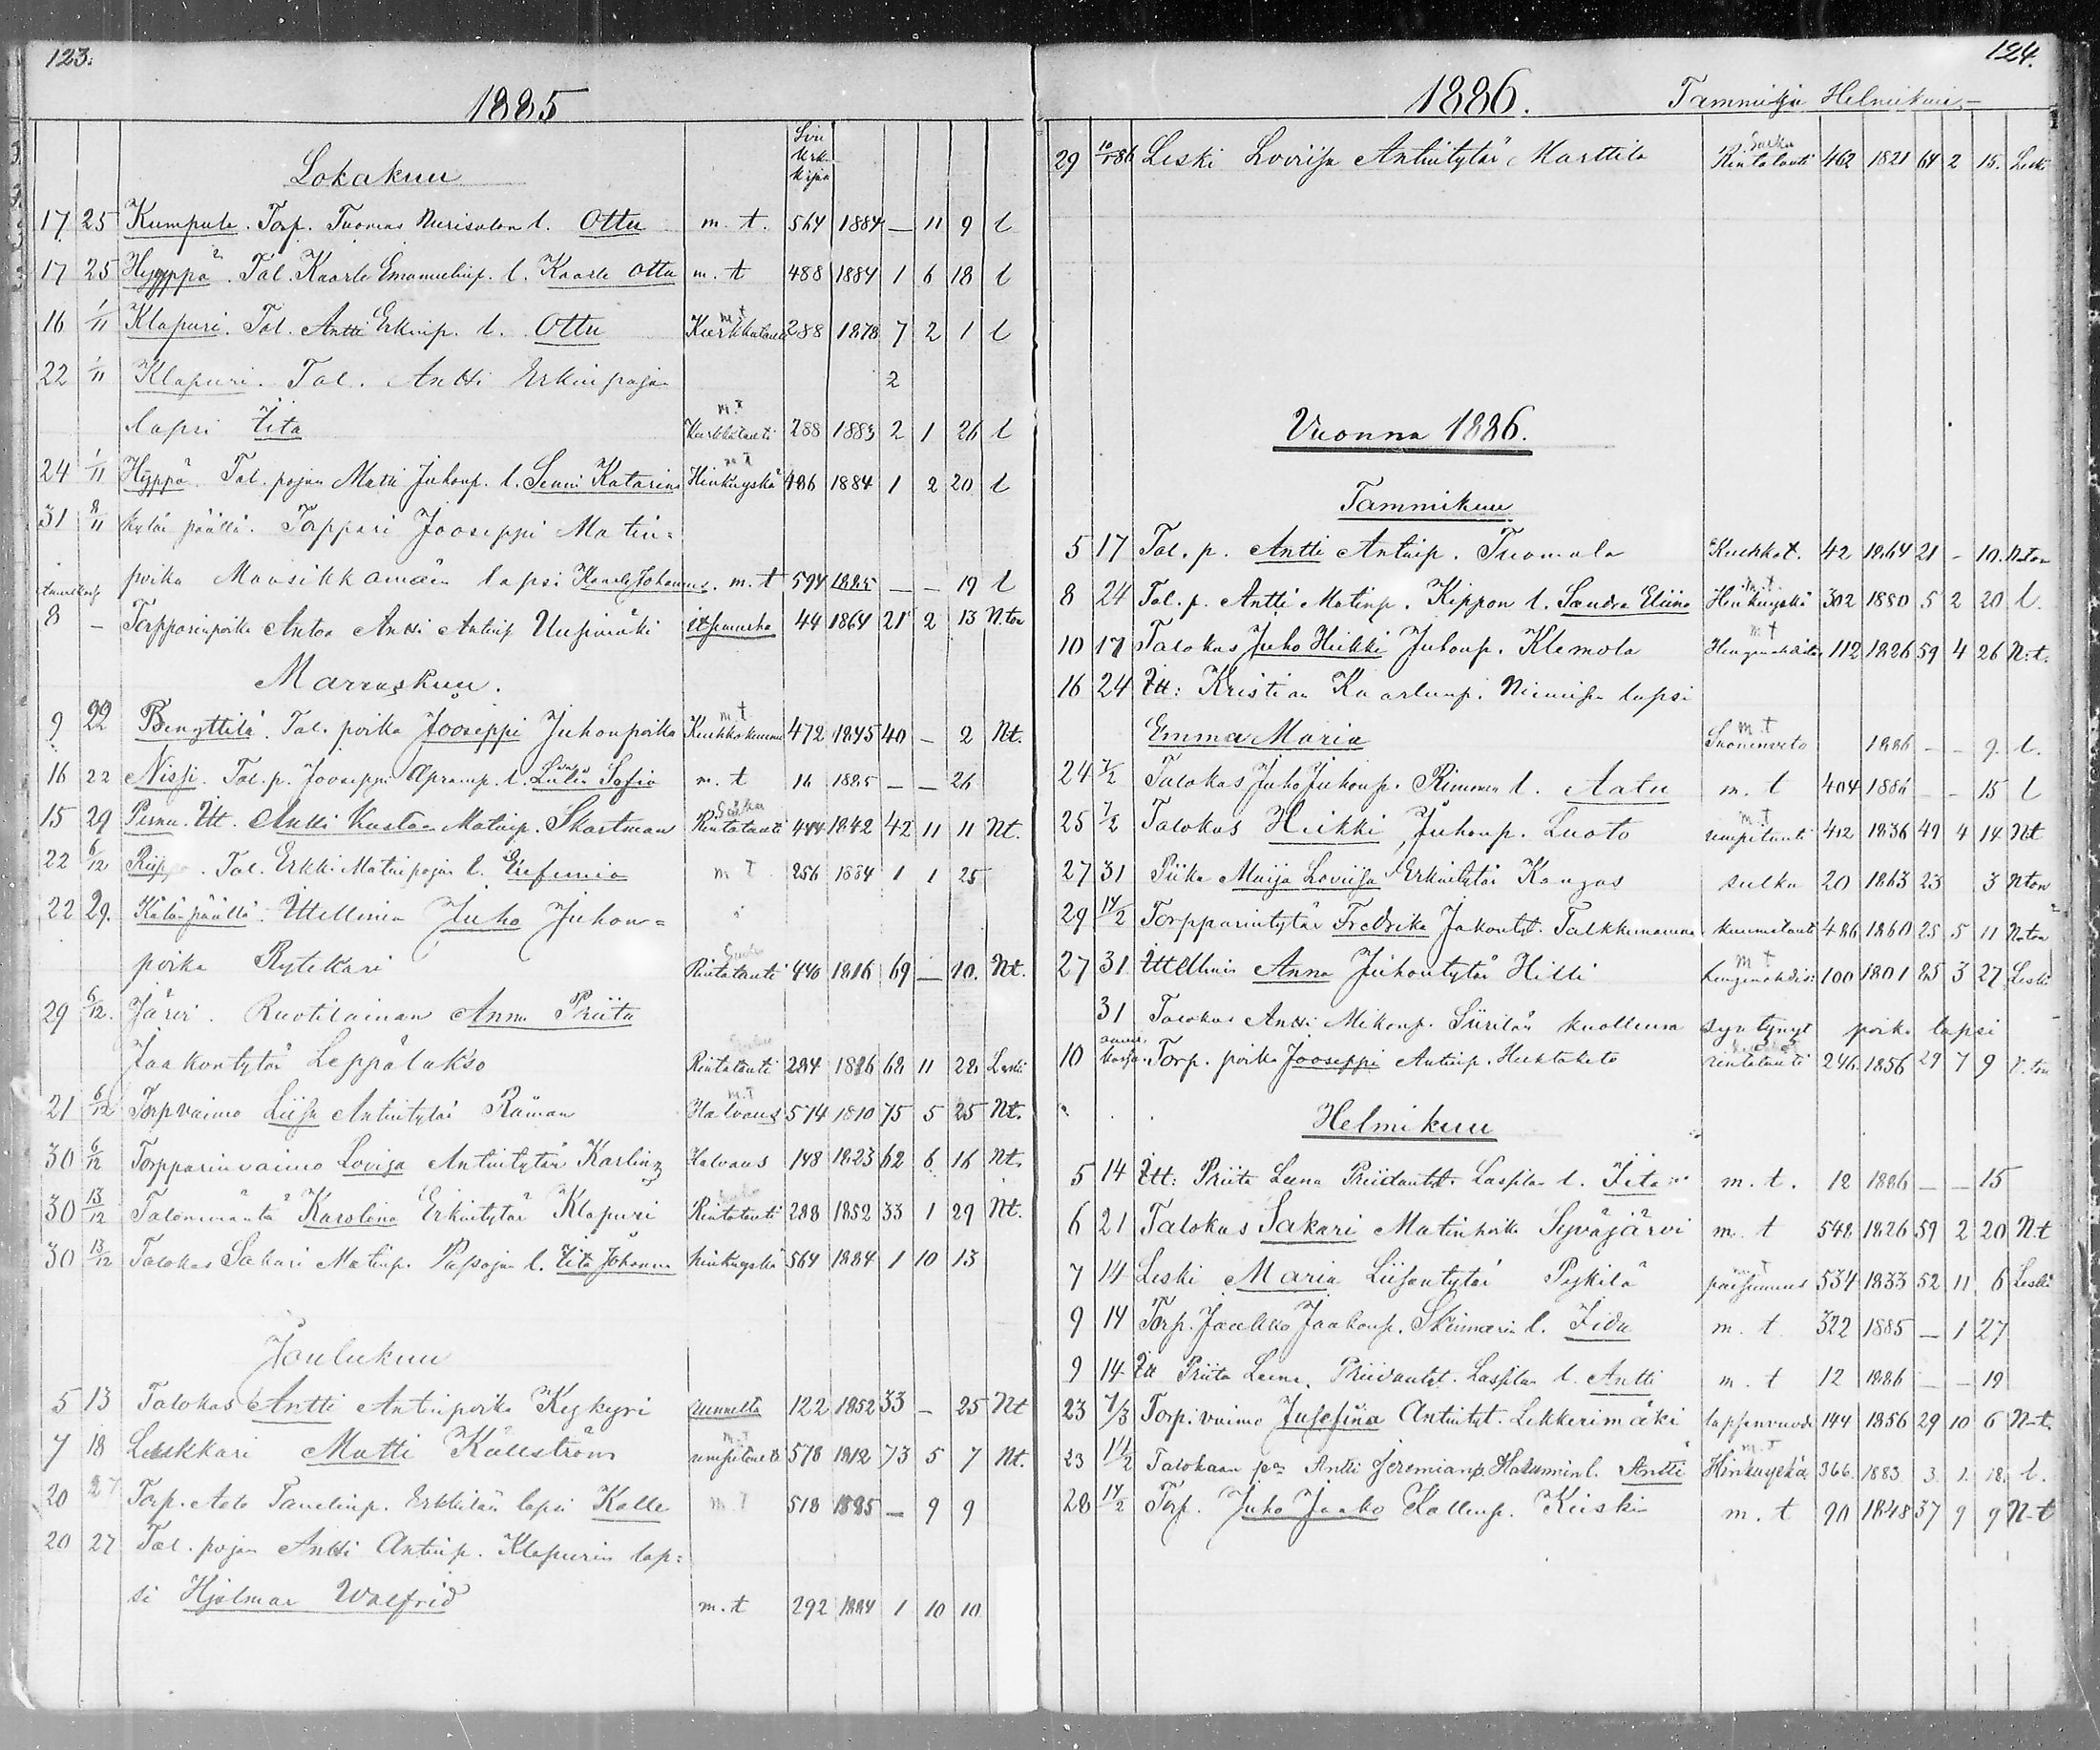 123.
1885
Siv.
Kirja
Lokakuu
17 25 Kumpula. Torp. Tuomas l. Ottu m. t. 564 1884 — 11 9 l
17 25 Hyyppä. Tal. Kaarle Emanuelinp. l. Kaarle Ottu m. t 488 1884 1 6 18 l
16 1/11 Klapuri. Tal. Antti Erkinp. l. Ottu m t Kurkkutauti 288 1878 7 2 1 l
22 1/11 Klapuri. Tal. Antti Erkinpojan 2
lapsi Iita m.t Kurkkutauti 288 1883 2 1 26 l
24 1/11 Hyppä. Tal. pojan Matti Juhonp. l. Senni Katarina m t Hinkuyskä 486 1884 1 2 20 l
31 8/11 kylän päällä. Torppari Jooseppi Matin=
poika Mansikkamäen lapsi Kaarle Johannes. m. t 594 1885 — — 19 l
8 — Torpparinpoika Anton Antti Antinp Uusimäki itsemurha 44 1864 21 2 13 N.ton
Marraskuu.
9 22 Benyttilä. Tal. poika Jooseppi Juhonpoika m t 472 1845 40 — 2 Nt.
16 22 Nissi. Tal. p. Jooseppi Apramp. l. Sofia m. t 16 1885 — — 26
15 29 Itt. Antti Kustaa Matinp. Skartman Rintatauti 444 1842 42 11 11 Nt.
22 6/12 Tal. Erkki Matinpojan l. Eufemia m t 256 1884 1 1 25
22 29. Kylän päällä. Ittellinen Juho Juhon=
poika Rytikari Rintatauti 440 1816 69 — 10. Nt.
29 6/12. Järvi. Ruotilainan Anna Priita
Jaakontytär Leppälakso Rintatauti 284 1816 68 11 28 Leski
21 6/12 Torp vaimo Liisa Antintytär Räman m.t Halvaus 574 1810 75 5 25 Nt.
30 6/12 Torpparinvaimo Lovisa Antintytär Karling Halvaus 148 1823 62 6 16 Nt.
30 13/12 Talonemäntä Karolina Erkintytär Klapuri Rintatauti 288 1852 33 1 29 Nt.
30 13/12 Talokas Sakari Matinp. Passojan l. Iita Johanna hinkuyskä 564 1884 1 10 13
Joulukuu
5 13 Talokas Antti Antinpoika Kykyri 122 1852 33 — 25 Nt
7 18 Matti Källström m.t umpitauti 578 1812 73 5 7 Nt.
20 27 Torp. Aato Tanelinp. Erkkilän lapsi Kalle m.t 518 1885 — 9 9
20 27 Tal. pojan Antti Antinp. Klapurin lap=
si Hjalmar Walfrid m. t 292 1884 1 10 10
124.
1886. Tammi ja Helmikuu —
29 10/1 86 Leski Loviisa Antintytär Marttila Rintatauti 462 1821 64 2 15. Leski
Vuonna 1886.
Tammikuu
5 17 Tal. p. Antti Antinp. Tuomala Kurkkut. 42 1864 21 - 10. N.ton
8 24 Tal. p. Antti Matinp. Kippon l. Sandra Eliina m.t. Hinkuyskä 302 1880 5 2 20 l.
10 17 Talokas Juho Heikki Juhonp. Klemola m t 112 1826 59 4 26 N.t.
16 24 Itt: Kristian Kaarlenp. Niemisen lapsi
Emma Maria m.t Suonenveto 1886 - - 9. l.
24 7/2 Talokas Juho Juhonp. Rimmin l. Aatu m. t 404 1886 - - 15 l
25 7/2 Talokas Heikki Juhonp. Luoto m.t umpitauti 412 1836 49 4 14 Nt
27 31 Piika Maija Loviisa Erkintytär Kangas sulku 20 1863 23 3 Nton
29 14/2 Torpparintytär Fredrika Jakontyt. kuumetauti 486 1860 25 5 11 N.ton
27 31 Ittellinen Anna Juhontytär Hilli m t 100 1801 85 3 27 Leski
31 Talokas Antti Mikonp. Siirilän kuolleena syntynyt poika lapsi
10 Torp. poika Jooseppi Antinp. Huhtaketo rintatauti 246 1856 29 7 9
Helmikuu
5 14 Itt: Priita Leena Priidantyt. Lassilan l. Iita m. t. 12 1886 — — 15
6 21 Talokas Sakari Matinpoika Syväjärvi m. t 548 1826 59 2 20 N.t
7 14 Leski Maria Liisantytär Pyhälä m t paisumus 534 1833 52 11 6 Leski
9 14 Torp. Jaakko Jaakonp. Skinnarin l. Iida m. t 322 1885 — 1 27
9 14 Itt Priita Leena, Priidantyt. Lassilan l. Antti m. t 12 1886 — — 19
23 7/3 Torp. vaimo Jusefina Antintyt. Lekkerimäki lapsenvuode 144 1856 29 10 6 N-t.
23 14/2 Talokaan pn Antti Jeremianp. l. Antti m.t Hinkuyskä 366 1883 3 1. 18. l.
28 14/2 Torp. Juho Jaako Kallenp. Kiiski m. t 90 1848 37 9 9 N-t